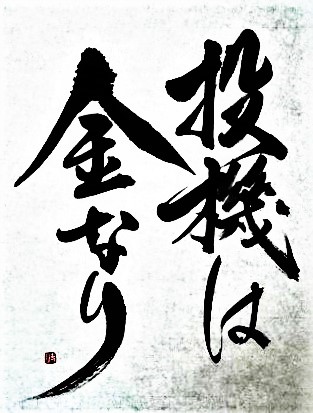 投機は
金なり